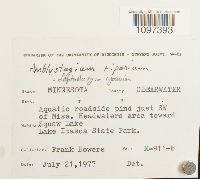 1097393
HERBARIUM OF THE UNIVERSITY OF WISCONSIN - STEVENS POINT
Amblystegium riparium
STATE: MINNESOTA COUNTY: CLEARWATER
Aquatic roadside pind just SW
of Miss. Headwaters area toward
Squaw Lake
Lake Itasca State Park.
COLL. Frank Bowers No. X-911-b
DATE July 21,1977 Det.